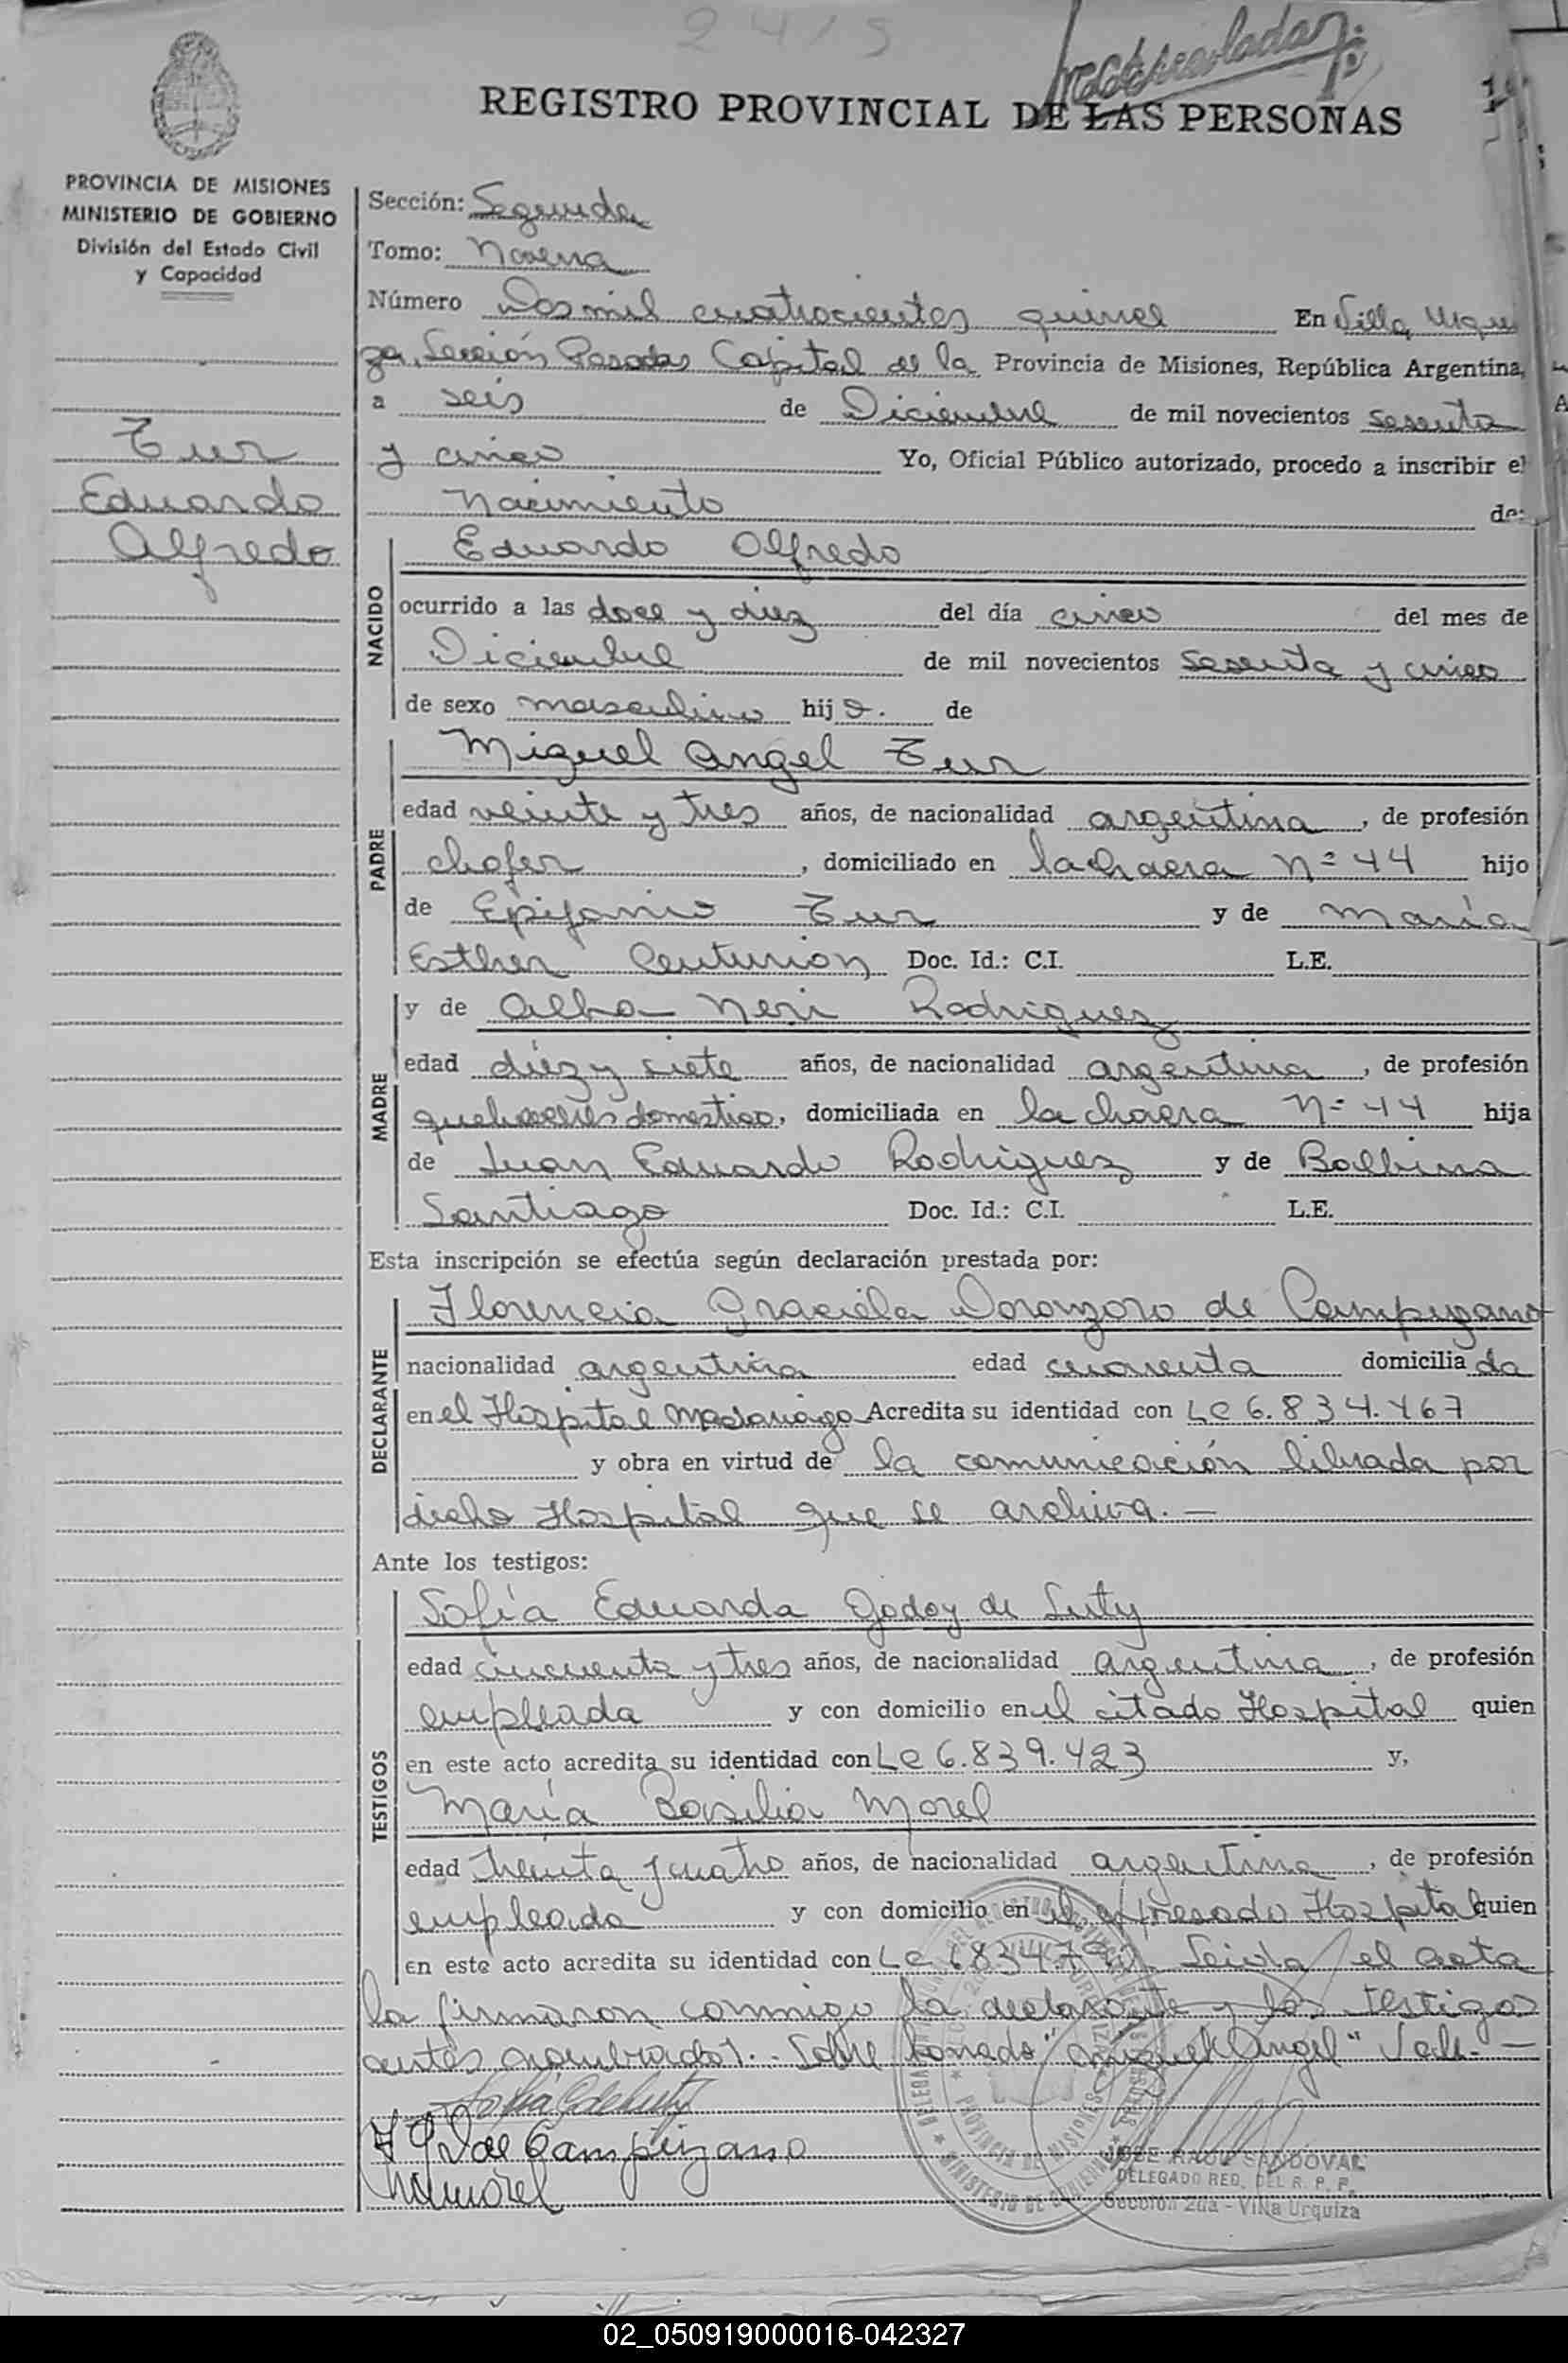 2415
REGISTRO PROVINCIAL DE LAS PERSONAS
PROVINCIA DE MISIONES
MINISTERIO DE GOBIERNO
División del Estado Civil
y Capacidad
Tur
Eduardo
Alfredo
Sección: Segunda
Tomo: Novena
Número Dos mil cuatrocientos quince En Villa Urqui
za, Sección Posadas Capital de la Provincia de Misiones, República Argentina,
a seis de Diciembre de mil novecientos sesenta
y cinco Yo, Oficial Público autorizado, procedo a inscribir el
Nacimiento de:
NACIDO
Eduardo Alfredo
ocurrido a las doce y diez del día cinco del mes de
Diciembre de mil novecientos sesenta y cinco
de sexo masculino hijo. de
PADRE
Miguel Angel Tur
edad veinte y tres años, de nacionalidad argentina, de profesión
chofer, domiciliado en la chacra Nº 44 hijo
de Epifanio Tur y de María
Esther Centurión Doc. Id.: C.I. L.E.
MADRE
y de Alba Neri Rodriguez
edad diez y siete años, de nacionalidad argentina, de profesión
quehaceres domestico, domiciliada en la chacra Nº 44 hija
de Juan Eduardo Rodriguez y de Balbina
Santiago Doc. Id.: C.I. L.E.
Esta inscripción se efectúa según declaración prestada por:
DECLARANTE
Florencia Graciela Doronzoro de Campuzano
nacionalidad argentina edad cuarenta domiciliada
en el Hospital Madariaga Acredita su identidad con Lc 6.834.467
y obra en virtud de la comunicación librada por
dicho Hospital que se archiva. —
Ante los testigos:
TESTIGOS
Sofía Eduarda Godoy de Luty
edad cincuenta y tres años, de nacionalidad argentina, de profesión
empleada y con domicilio en el citado Hospital quien
en este acto acredita su identidad con Lc 6.839.423 y,
María Basilia Morel
edad treinta y cuatro años, de nacionalidad argentina, de profesión
empleada y con domicilio en el expresado Hospital quien
en este acto acredita su identidad con Lc Leida el acta
la firmaron conmigo la declarante y los testigos
antes nombrados. Sobre borrado "Miguel Angel" Vale. —
Sofia G de Luty
F G D de Campuzano
Morel
JOSE RAUL SANDOVAL
DELEGADO REG. DEL R. P. P.
Sección 2da - Villa Urquiza
02_050919000016-042327